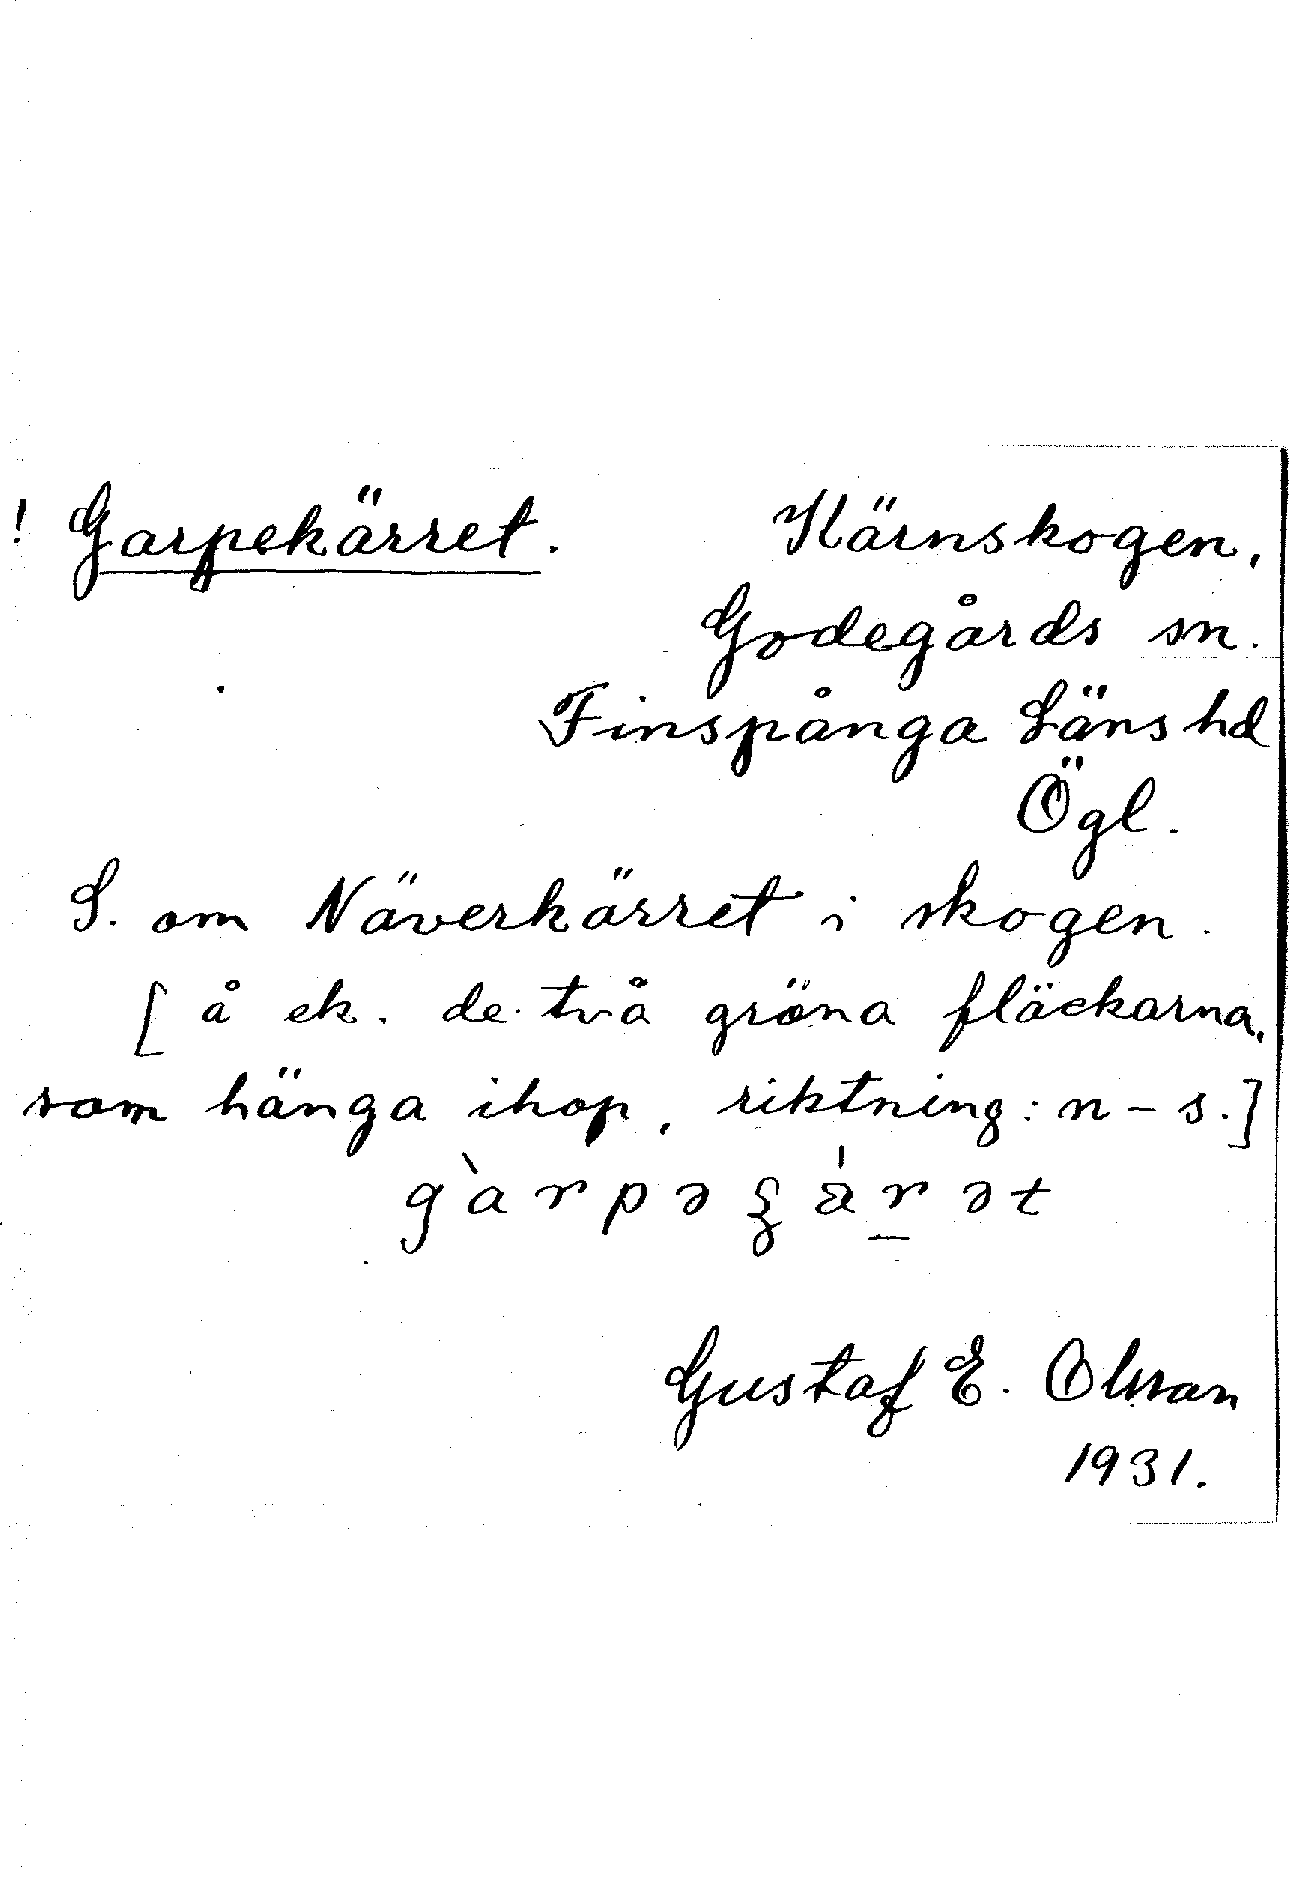 ! Garpekärret. Kärnskogen,
Godegårds sn.
Finspånga Läns hd
Ögl.
S. om Näverkärret i skogen.
[å ek. de två gröna fläckarna,
som hänga ihop, riktning: n – s.]
Gustaf E. Olsson
1931.